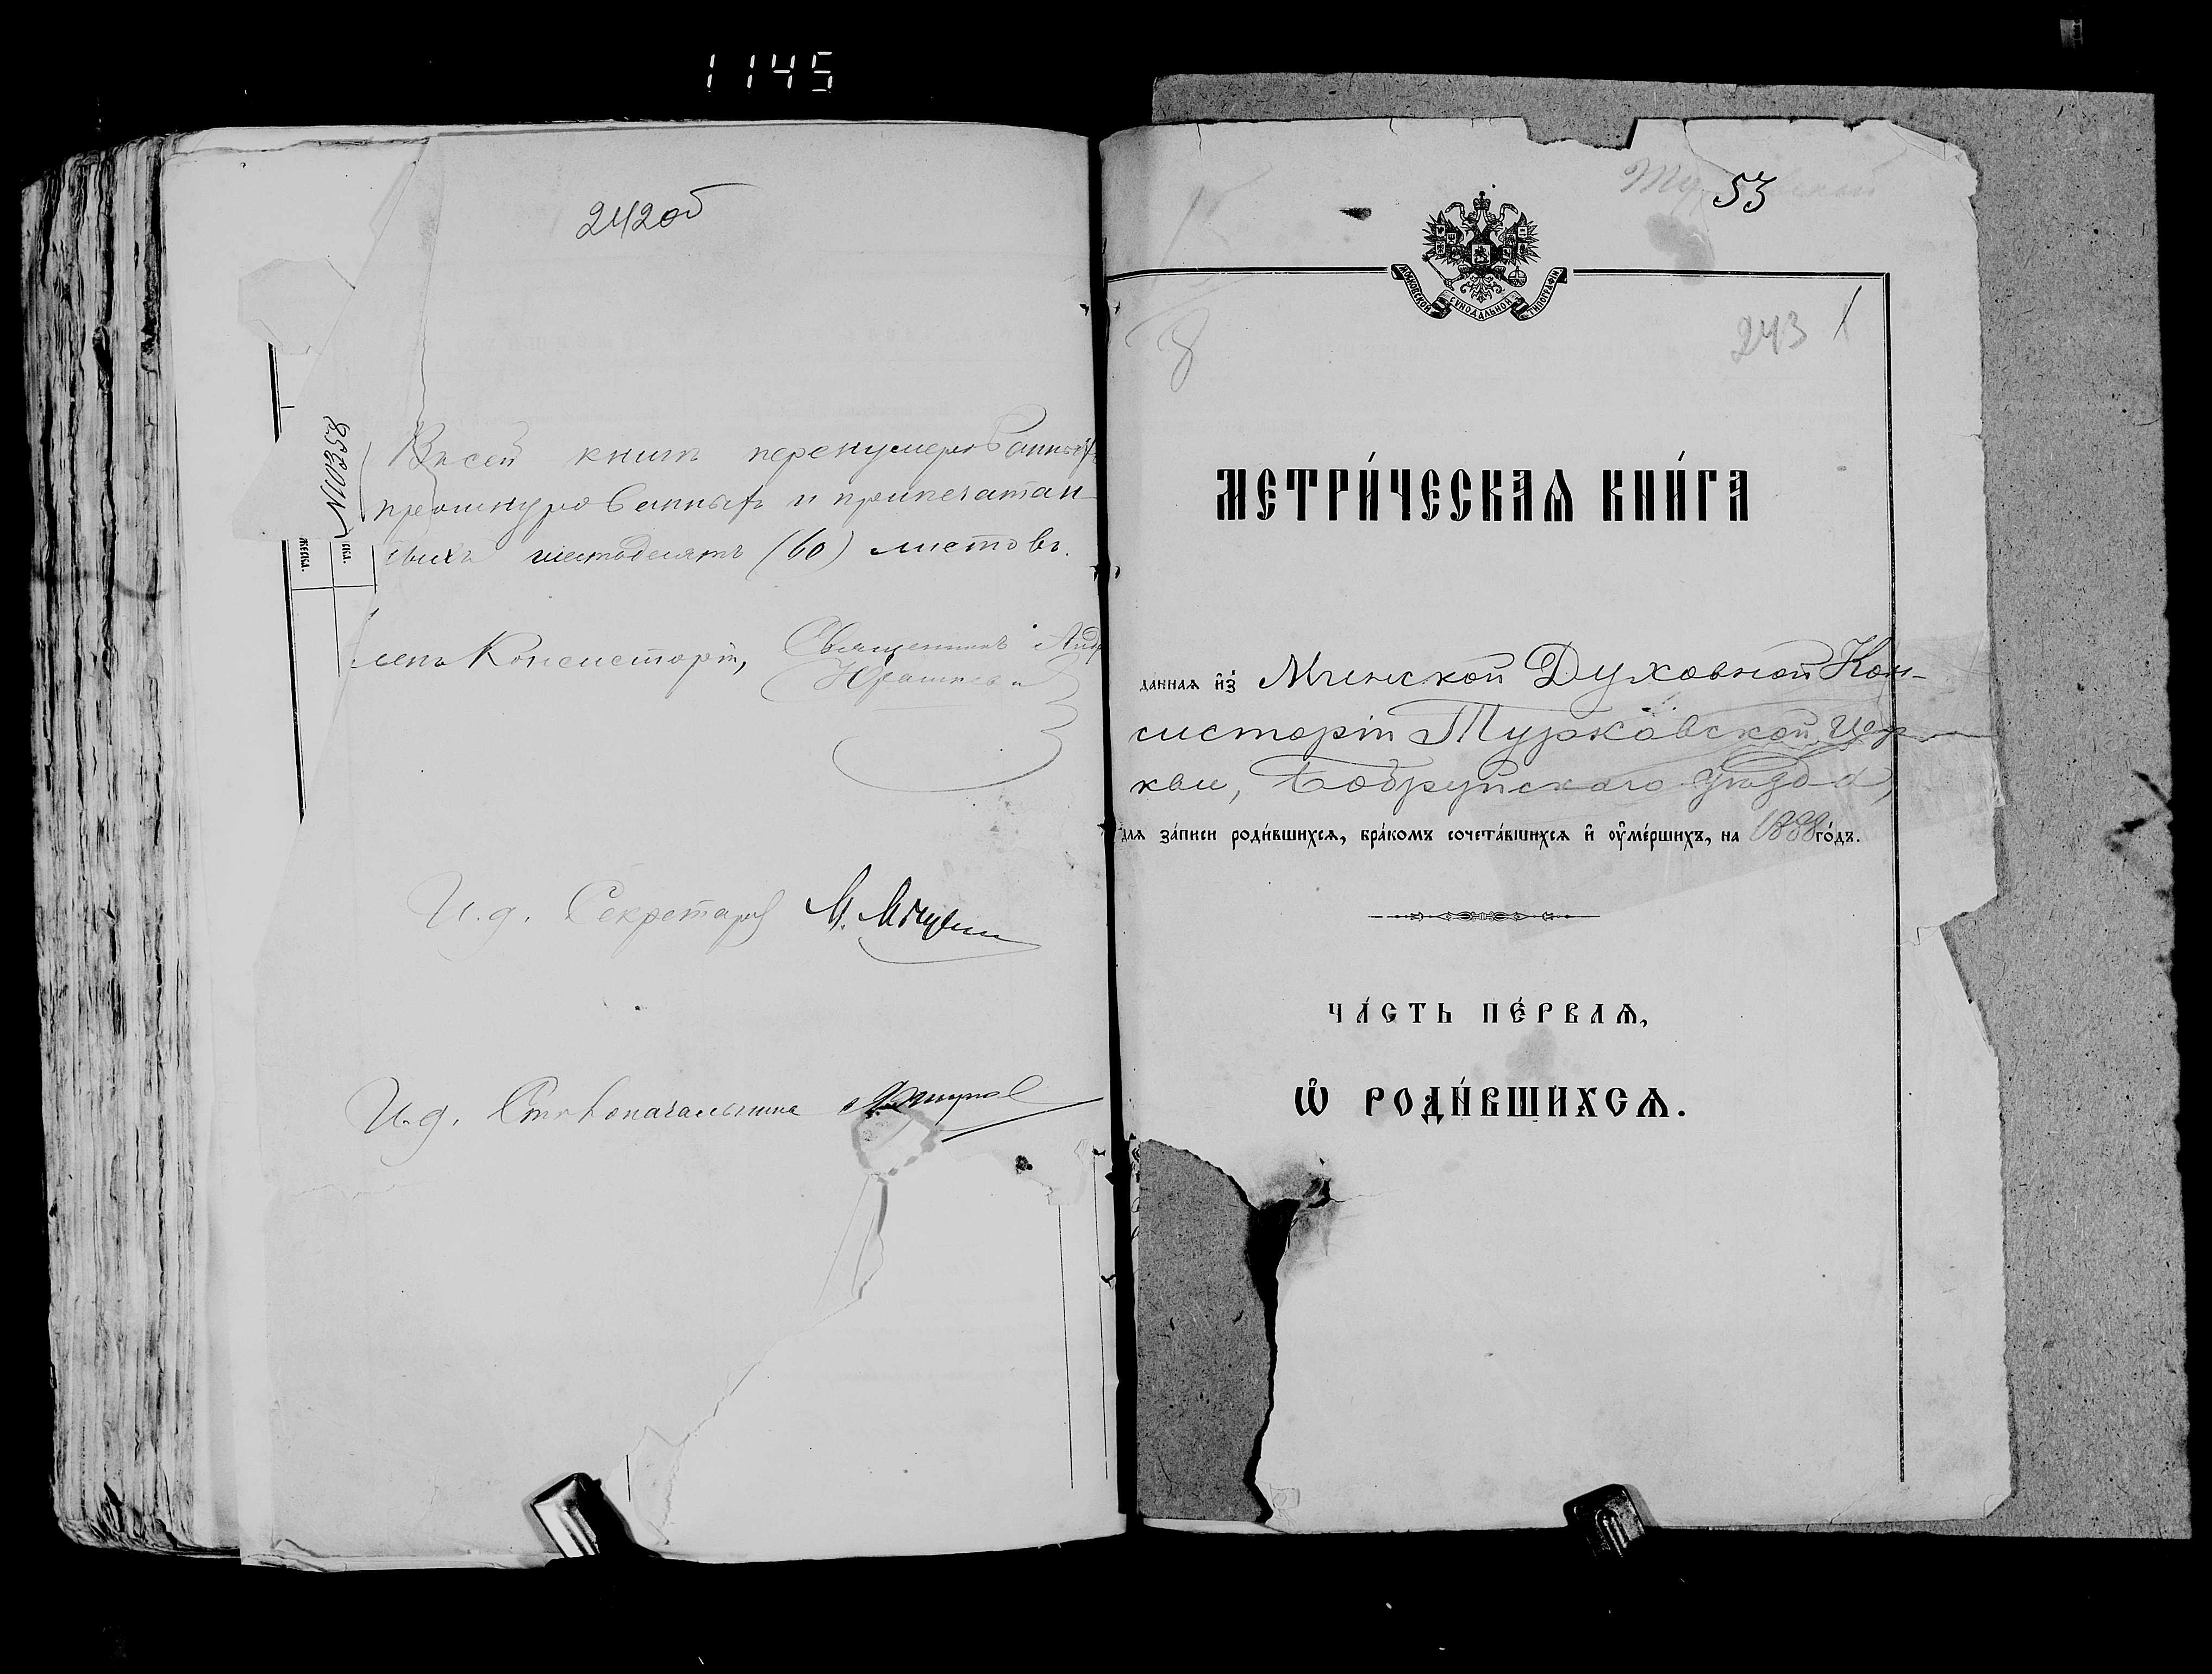 1145
242об
№10358
Въ сей книгѣ перенумерованныхъ
прошнурованныхъ и припечатан-
ныхъ шестьдесятъ (60) листовъ.
Членъ Консисторіи, Священникъ
И. д. Секретаря М.
И. д. Столоначальника
53
МОСКОВСКОЙ СУНОДАЛЬНОЙ ТИПОГРАФІИ
8
243 1
МЕТРИ́ЧЕСКАѦ КНИ́ГА
да́нная и҆з̾ Минской Духовной Кон-
систоріи Турковской Цер-
кви, Бобруйскаго уѣзда,
для за́писи роди́вшихся, бра́комъ сочета́вшихся и҆ ᲂу҆ме́ршихъ, на 1888 го́дъ.
ЧА́СТЬ ПЕ́РВАѦ,
Ѽ РОДИ́ВШИХСѦ.